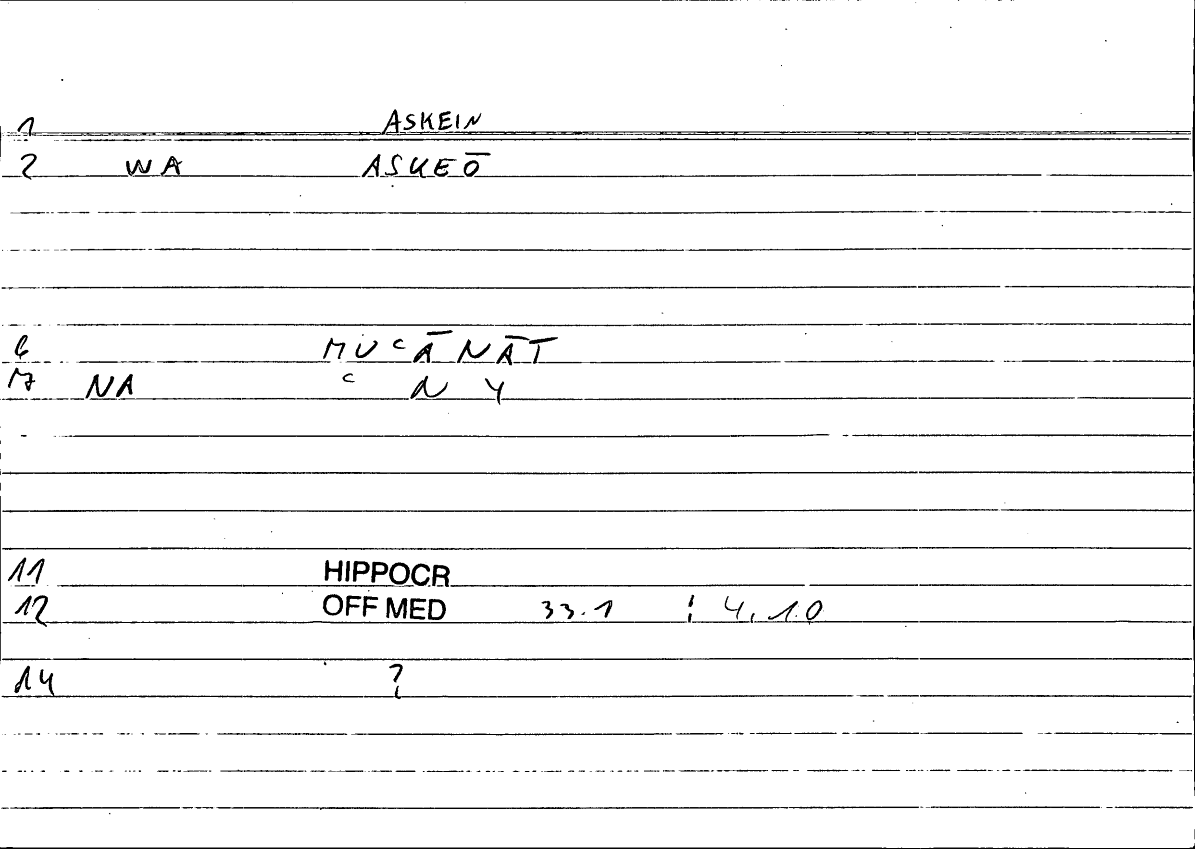 1 ASKEIN
2 WA ASKEŌ
6 MUᶜĀNĀT
17 NA ᶜ N Y
11 HIPPOCR
12 OFF MED 33.1 ; 4,10
14 ?